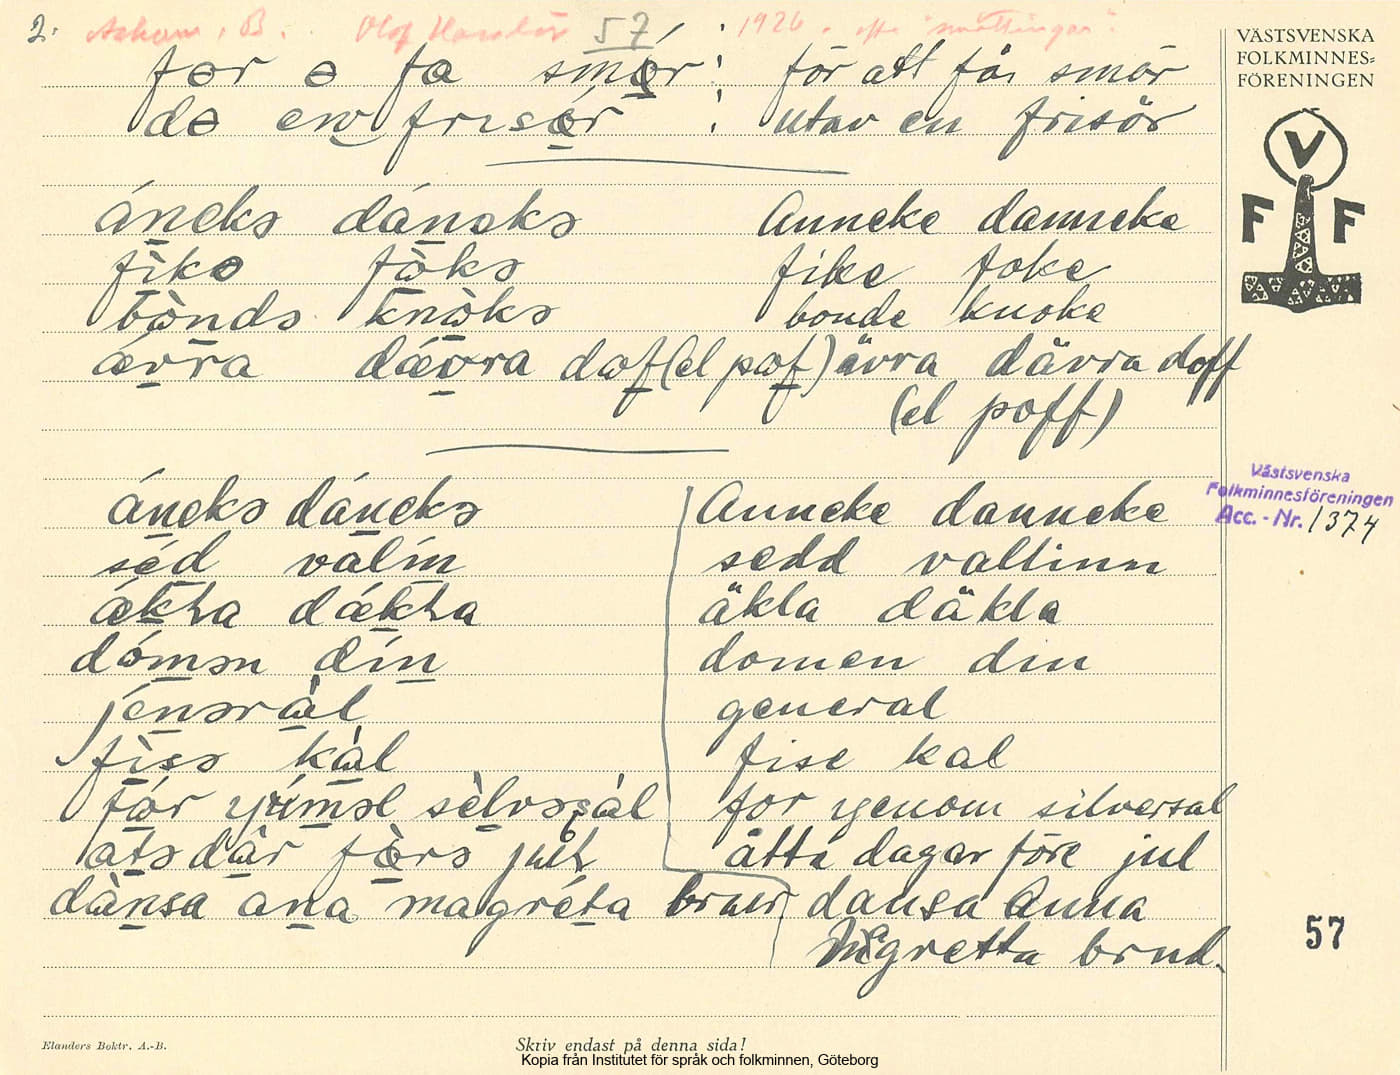 2. Askum, B. Olof Hansson 57 1926. efter "småttingar".
fɵr ɵ fɵ smǿr : för att få smör
dɵ en frisǿr : utav en frisör
ánekə dánekə Anneke danneke
fìkə fòkə fike foke
bòndə knòkə bonde knoke
ǽvra dǽvra dɷf (el pɷf) ävra dävra doff
(el poff)
ánekə dánekə Anneke danneke
séd valín sedd vallinn
ǽkta dǽkta äkla däkla
dómən dín domen din
jénəràl general
fisə kàl fise kal
fór sèlvəsàl for genom silversal
àtə dàr fòrə jul åtta dagar före jul
dànsa ana magréta brur dansa Anna
Megretta brud.
VÄSTSVENSKA
FOLKMINNES-
FÖRENINGEN
V
F F
Västsvenska
Folkminnesföreningen
Acc. - Nr. 1374
57
Elanders Boktr. A.-B.
Skriv endast på denna sida!
Kopia från Institutet för språk och folkminnen, Göteborg